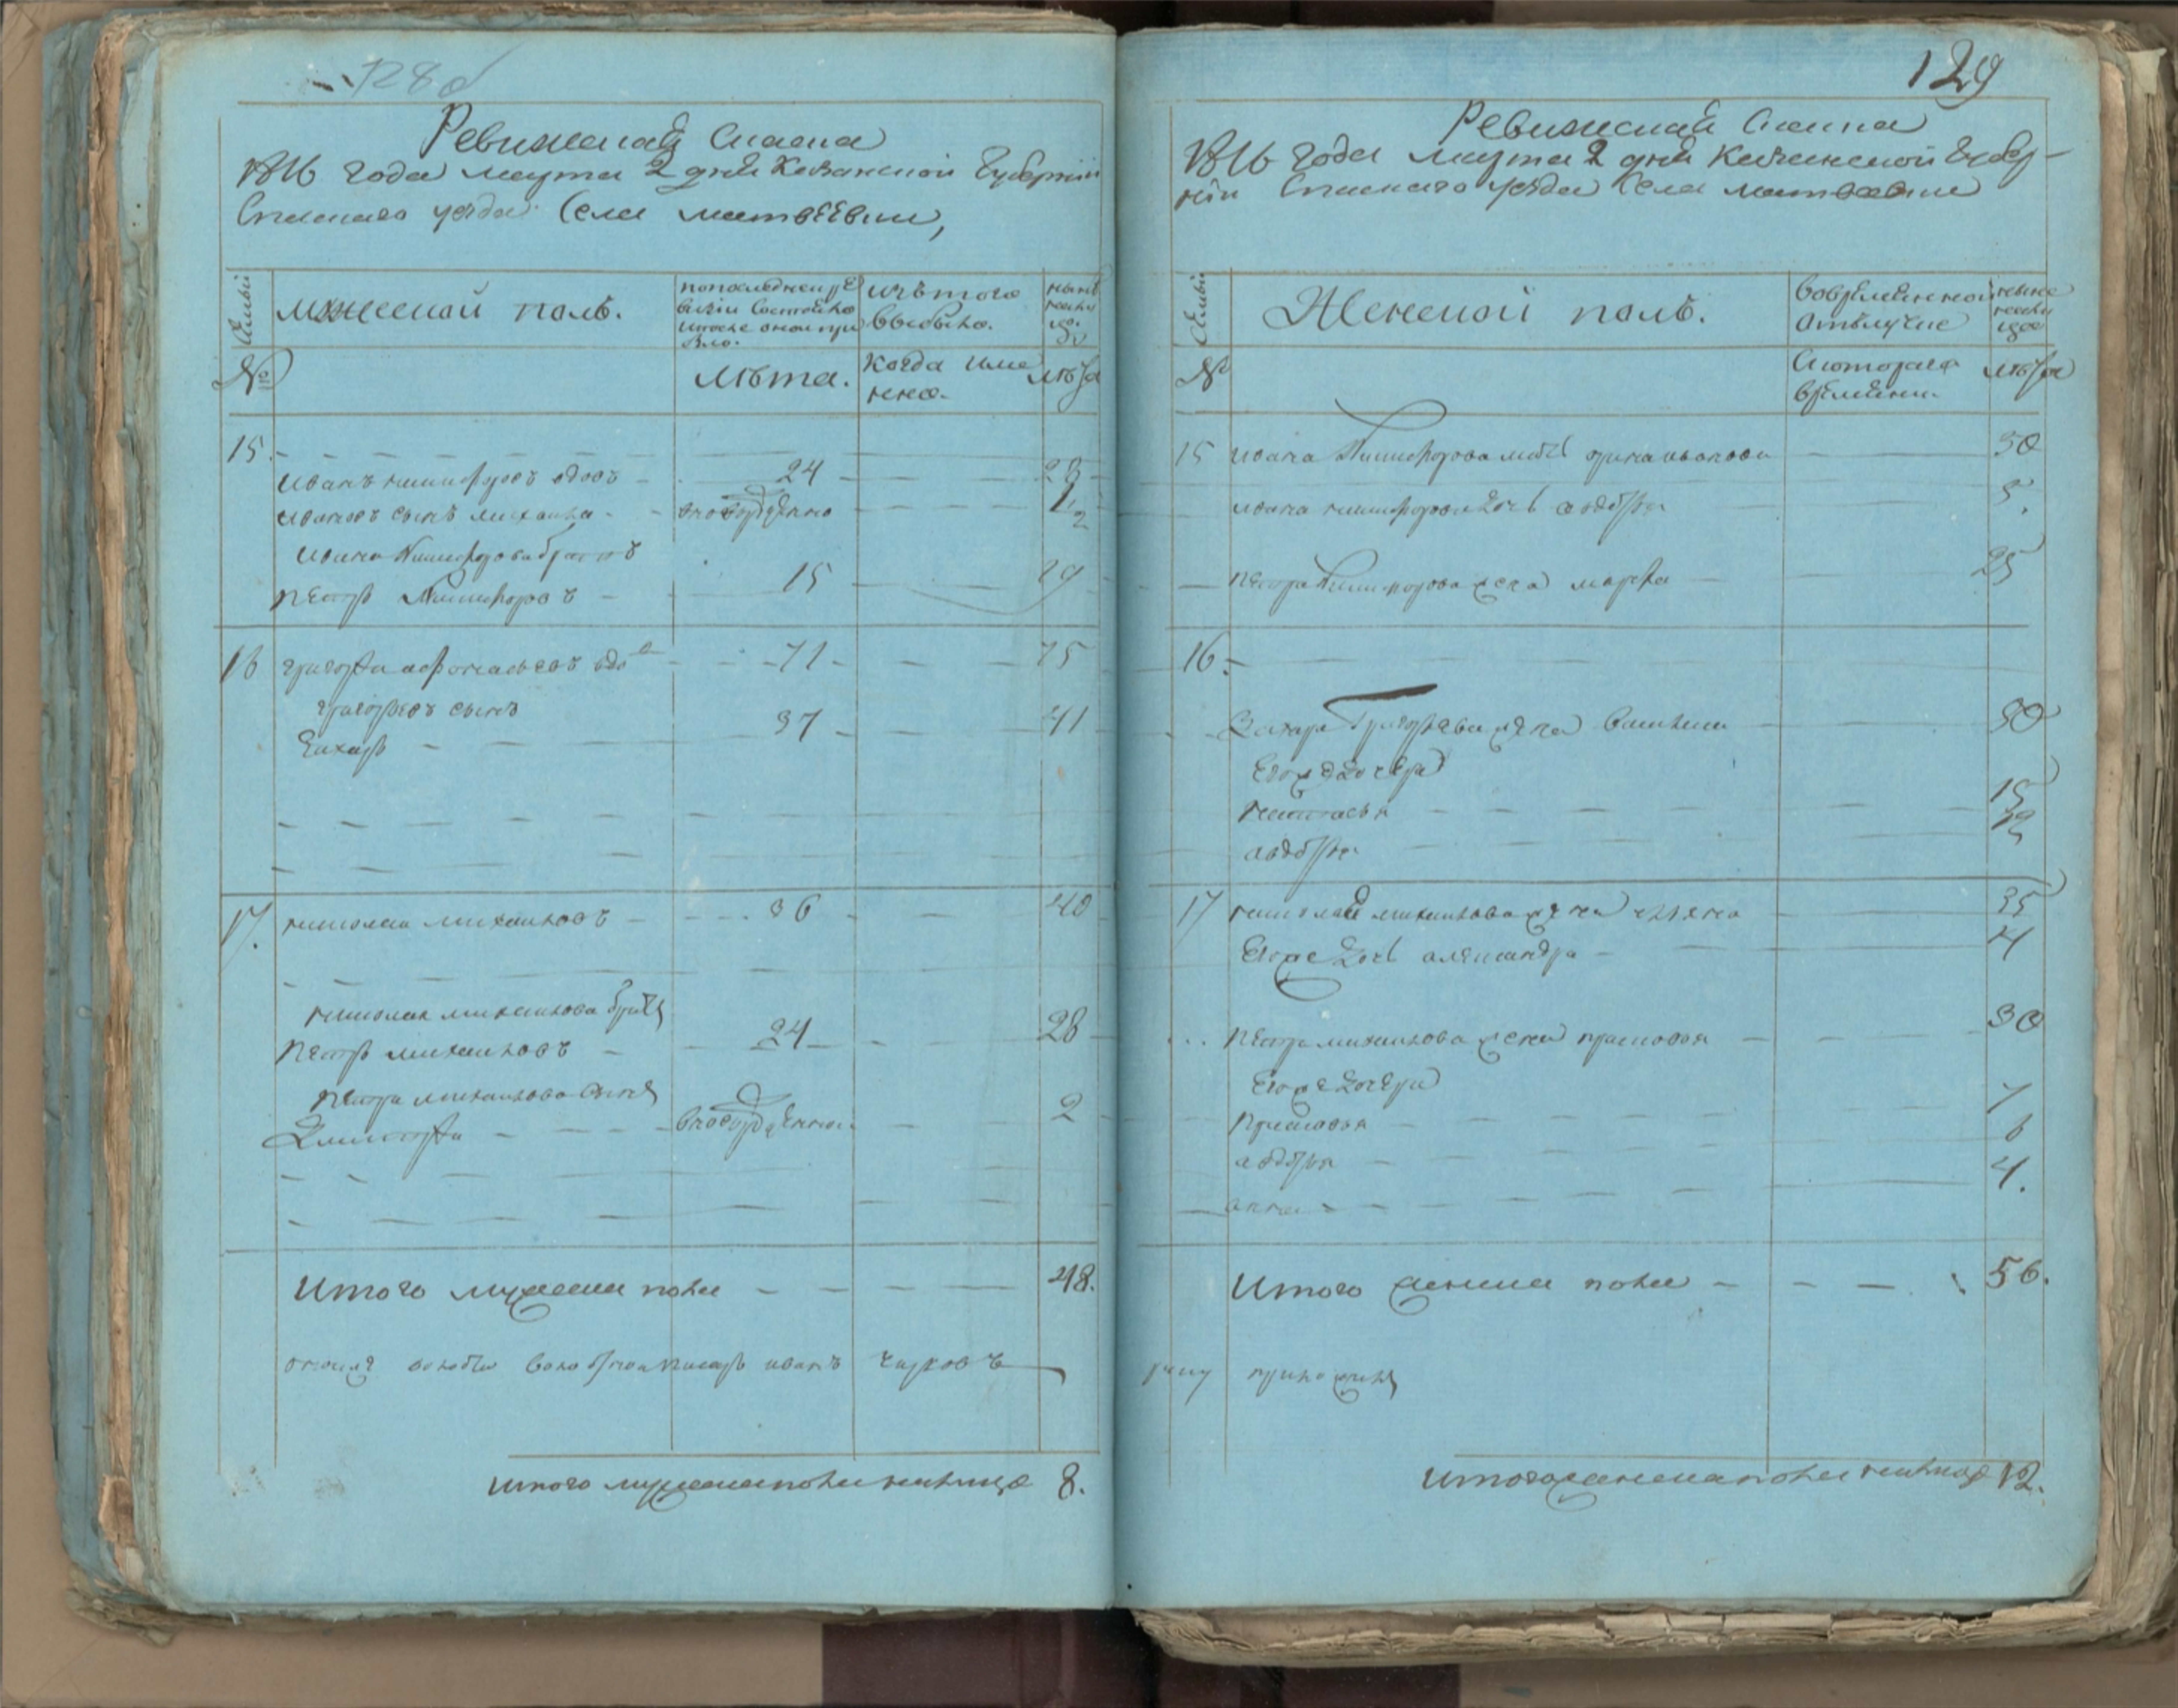 128об
Ревижская Скаска
1816 года марта 2 дня Казанской Губернии
Спаскаго уезда Села матвеевки,
Семьи
мужеской полъ.
попоследней ре
визии Состояло
ипосле оной при
было.
изътого
выбыло.
ныне
налицо
№
лѣта.
когда име
нно.
лѣта
15.
иванъ никифоровъ вдовъ 24 28
ивановъ сынъ михаила вновьрожденно 1/2
ивана Никифорова братъ
петръ Никифоровъ 15 19
16 григорей афонасьевъ вдовъ 71 75
григорьевъ сынъ
Захаръ 37 41
17. николай михаиловъ 36 40
николая михаилова братья
петръ михаиловъ 24 28
петра михаилова сынъ
Дмитрей вновьрожденной 2
Итого мужеска пола 48.
писарь иванъ чирковъ
итого мужескаполаналицо 8.
129
Ревижская Скаска
1816 года марта 2 дня Казанской Губер-
нии Спаскаго уезда Села матвеевки
Семьи
Женской полъ.
вовременной
отълучке
ныне
налицо
№
Скоторого
времени.
лѣта
15 ивана Никифорова мать ирина иванова 50
ивана никифорова дочь авдотья 5.
петра Никифорова жена марфа 25
16.
Захара Григорьева жена василиса 30
Егожедочери
настасья 15
авдотья 12
17 николая михаилова жена 35
Егоже дочь александра 4
петра михаилова жена прасковья 30
Егоже дочери
прасковья 7
авдотья 6
анна 4.
Итого женска пола 56.
руку приложилъ
итогоженскаполаналицо 12.